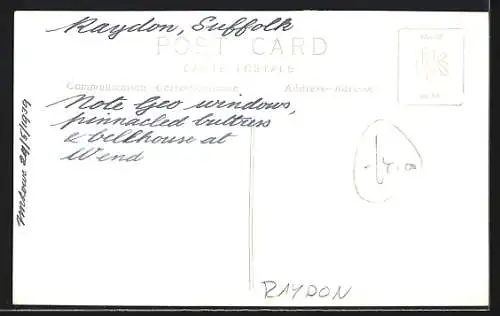 Raydon, Suffolk
POST CARD
CARTE POSTALE
Communication-Correspondance Address-Adresse
Note Geo windows,
pinnacled buttress
& bellhouse at
W end
29/5/1979
RAYDON